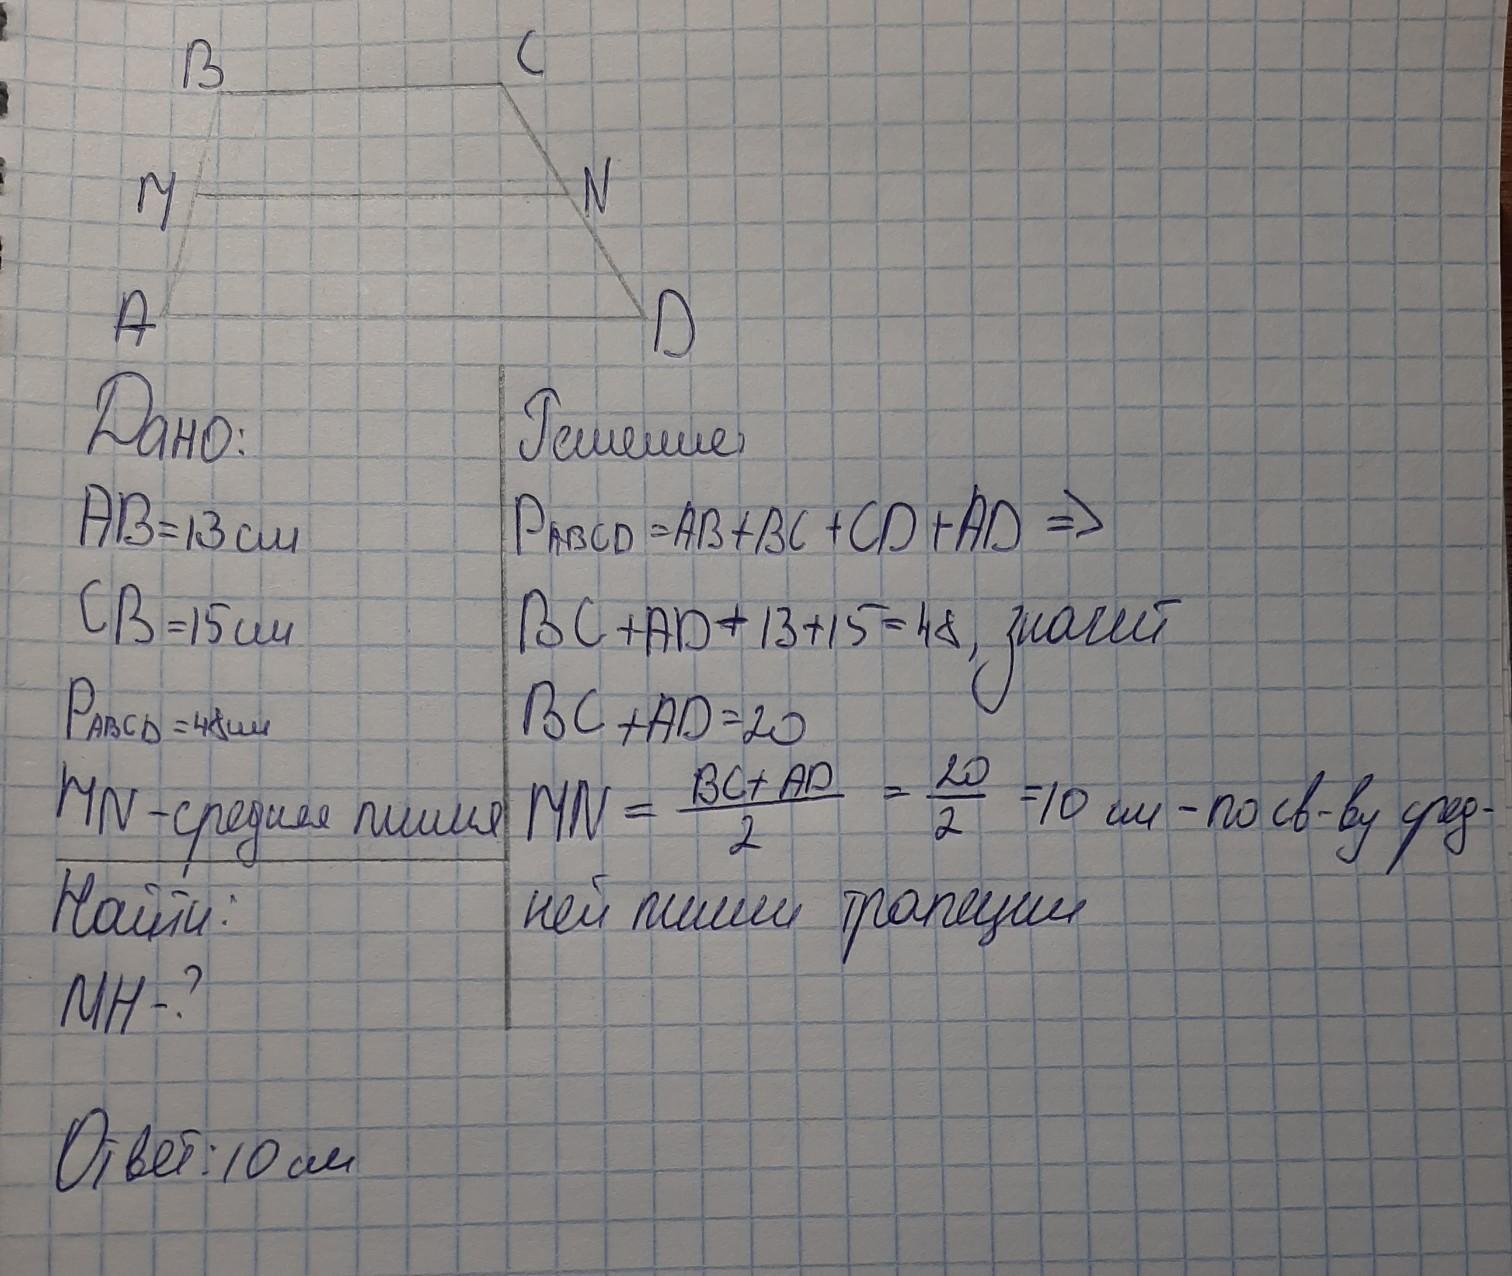 B C
M N
A D
Дано:
AB=13см
CB=15см
PABCD=48см
MN-средняя линия
Найти:
MH-?
Решение:
PABCD=AB+BC+CD+AD =>
BC+AD+13+15=48, значит
BC+AD=20
MN = BC+AD/2 = 20/2 =10 см - по св-ву сред-
ней линии трапеции
Ответ: 10 см